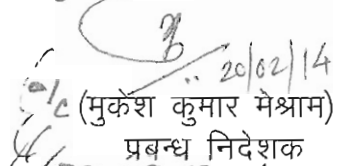 20/02/14
(मुकेश कुमार मेश्राम)
प्रबन्ध निदेशक